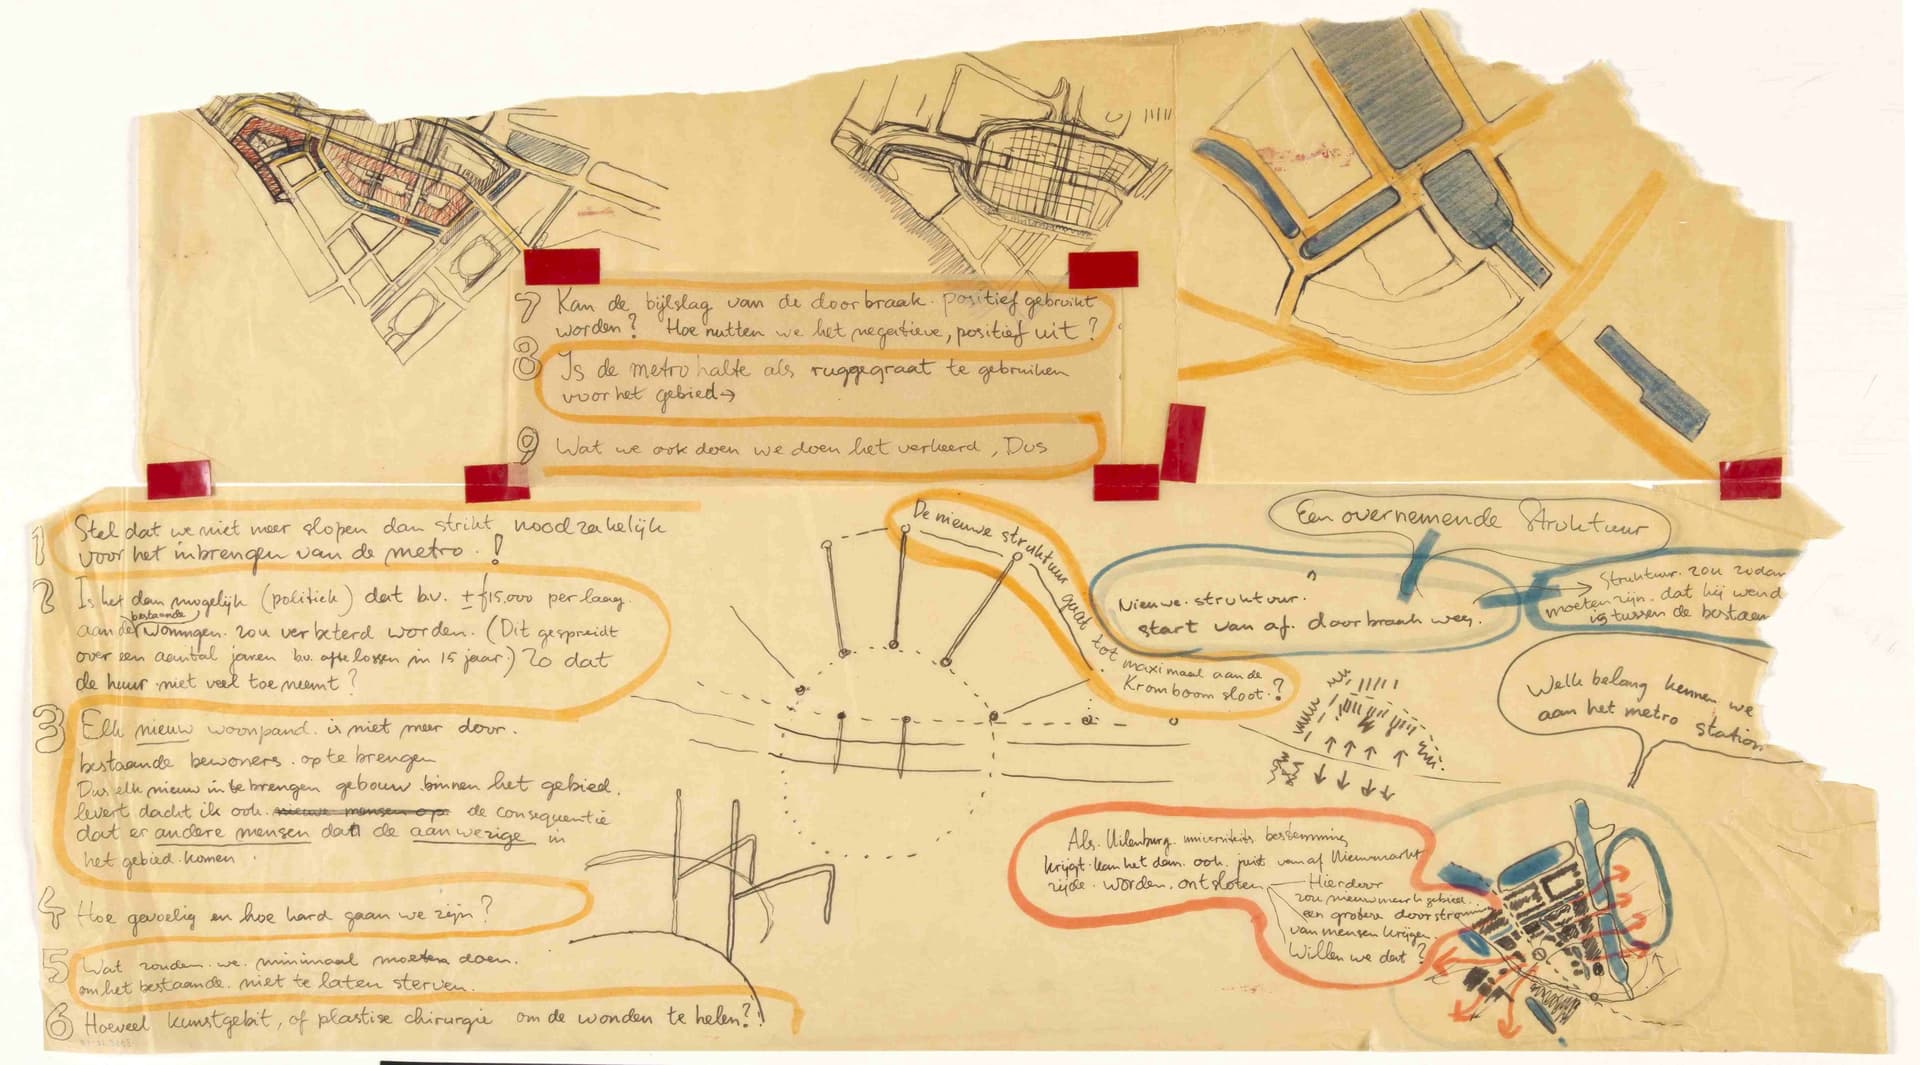 7 Kan de bijlslag van de doorbraak. positief gebruikt
worden? Hoe nutten we het negatieve, positief uit?
8 Is de metro halte als ruggegraat te gebruiken
voor het gebied →
9 Wat we ook doen we doen het verkeerd, Dus
1 Stel dat we niet meer slopen dan strikt noodzakelijk
voor het inbrengen van de metro.!
2 Is het dan mogelijk (politiek) dat bv. ± f15,000 per laag.
bestaande
aan de woningen. zou verbeterd worden. (Dit gespreidt
over een aantal jaren bv. af te lossen in 15 jaar.) Zo dat
de huur niet veel toe neemt?
3 Elk nieuw woonpand is niet meer door.
bestaande bewoners. op te brengen
Dus elk nieuw in te brengen gebouw binnen het gebied.
levert dacht ik ook. nieuwe mensen op de consequentie
dat er andere mensen dan de aanwezige in
het gebied komen.
4 Hoe gevoelig en hoe hard gaan we zijn?
5 Wat zouden we minimaal moeten doen.
om het bestaande. niet te laten sterven.
6 Hoeveel kunstgebit, of plastise chirurgie om de wonden te helen?!
De nieuwe struktuur gaat tot maximaal aan de
Kromboom sloot.?
Een overnemende Struktuur
Nieuwe struktuur.
start van af. doorbraak weg.
Struktuur. zou zodan
moeten zijn. dat hij wend
is tussen de bestaen
Welk belang kennen we
aan het metro station
Als. Uilenburg. universiteits bestemming
krijgt. kan het dan. ook. juist van af Nieuwmarkt
zijde. worden. ontsloten
Hierdoor
zou nieuwmarkt gebied.
een grotere doorstroming
van mensen krijgen.
Willen we dat?